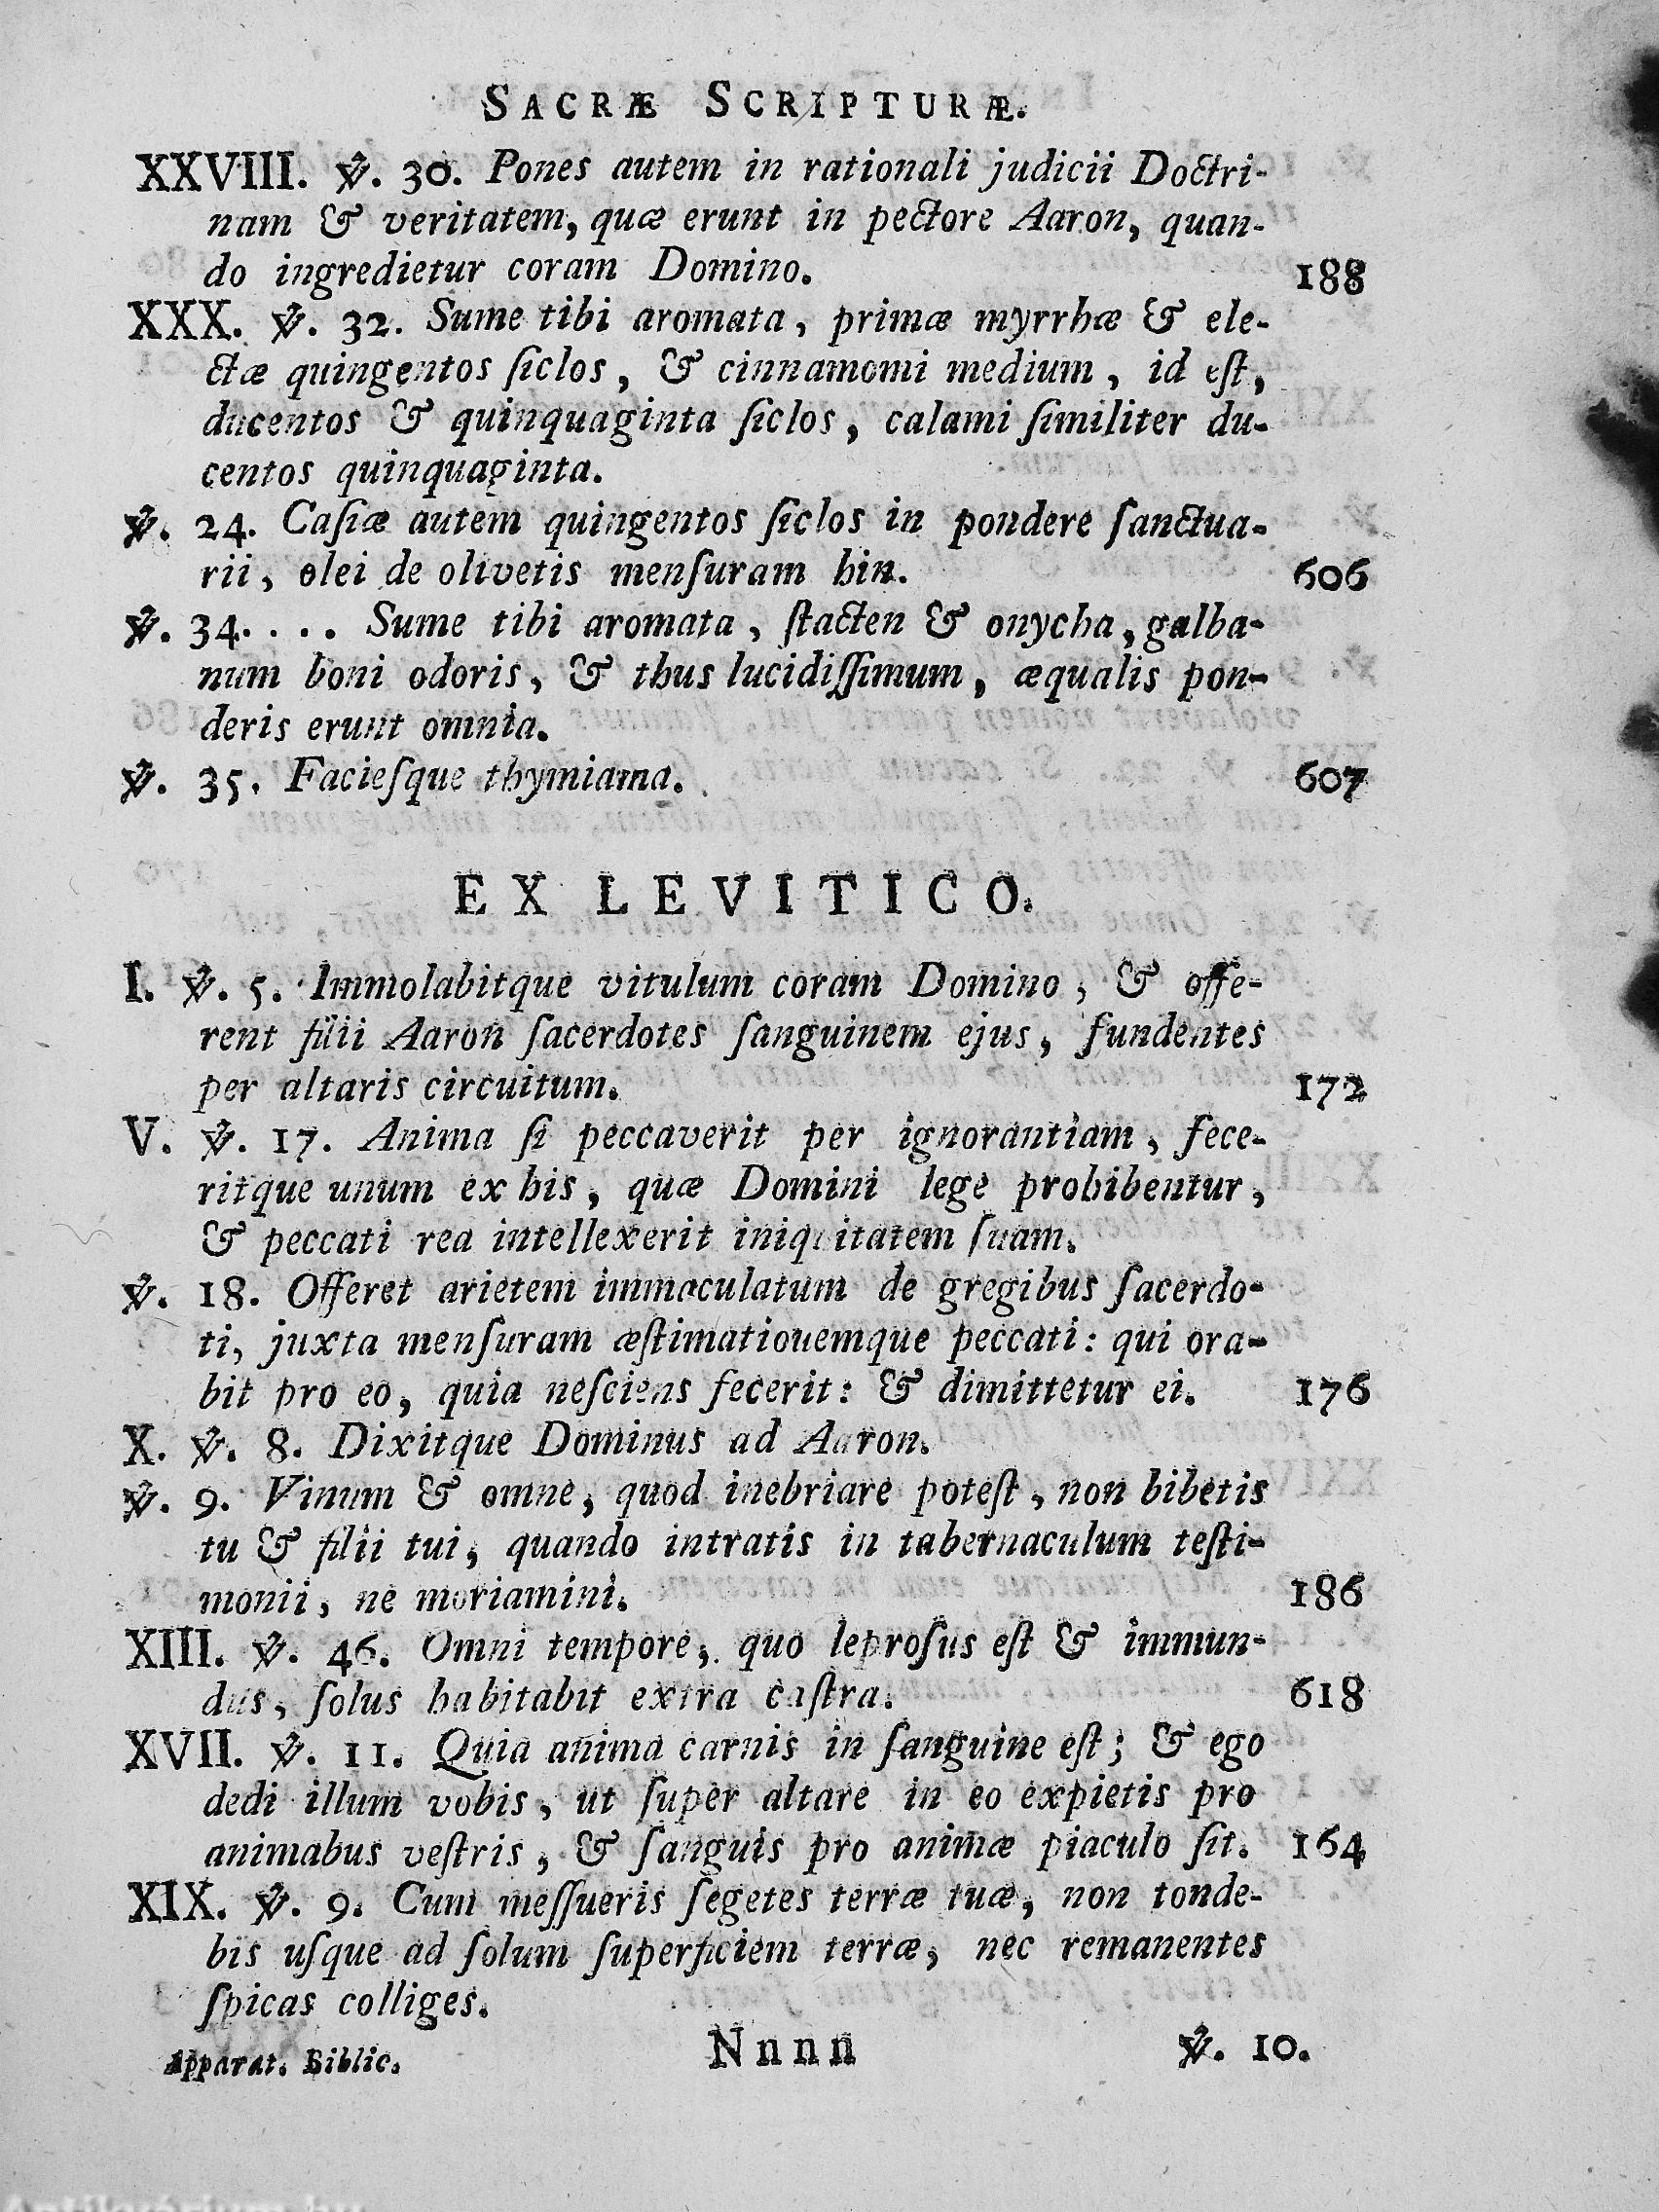 SACRÆ SCRIPTURÆ.
XXVIII. ℣. 30. Pones autem in rationali judicii Doctri-
nam & veritatem, quæ erunt in pectore Aaron, quan-
do ingredietur coram Domino. 188
XXX. ℣. 32. Sume tibi aromata, primæ myrrhæ & ele-
ctæ quingentos ſiclos, & cinnamomi medium, id eſt,
ducentos & quinquaginta ſiclos, calami ſimiliter du-
centos quinquaginta.
℣. 24. Caſiæ autem quingentos ſiclos in pondere ſanctua-
rii, olei de olivetis menſuram hin. 606
℣. 34. . . . Sume tibi aromata, ſtacten & onycha, galba-
num boni odoris, & thus lucidiſſimum, æqualis pon-
deris erunt omnia.
℣. 35. Facieſque thymiama. 607
EX LEVITICO.
I. ℣. 5. Immolabitque vitulum coram Domino, & offe-
rent filii Aaron ſacerdotes ſanguinem ejus, fundentes
per altaris circuitum. 172
V. ℣. 17. Anima ſi peccaverit per ignorantiam, fece-
ritque unum ex his, quæ Domini lege prohibentur,
& peccati rea intellexerit iniquitatem ſuam.
℣. 18. Offeret arietem immaculatum de gregibus ſacerdo-
ti, juxta menſuram æſtimatiouemque peccati: qui ora-
bit pro eo, quia neſciens fecerit: & dimittetur ei. 176
X. ℣. 8. Dixitque Dominus ad Aaron.
℣. 9. Vinum & omne, quod inebriare poteſt, non bibetis
tu & filii tui, quando intratis in tabernaculum teſti-
monii, ne moriamini. 186
XIII. ℣. 46. Omni tempore, quo leproſus eſt & immun-
dus, ſolus habitabit extra caſtra. 618
XVII. ℣. 11. Quia anima carnis in ſanguine eſt; & ego
dedi illum vobis, ut ſuper altare in eo expietis pro
animabus veſtris, & ſanguis pro animæ piaculo ſit. 164
XIX. ℣. 9. Cum meſſueris ſegetes terræ tuæ, non tonde-
bis uſque ad ſolum ſuperficiem terræ, nec remanentes
ſpicas colliges.
Apparat. Biblic. Nnnn ℣. 10.